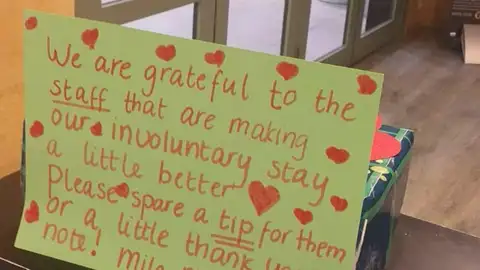 We are grateful to the
staff that are making
our involuntary stay
a little better
Please spare a tip for them
or a little thank
note!